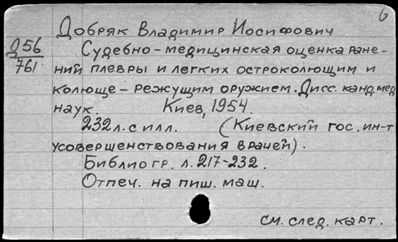 6
Добряк Владимир Иосифович
Д56
761
Судебно-медицинская оценка ране-
ний плевры и легких остроколющим и
колюще-режущим оружием. Дисс. канд. мед.
наук. Киев, 1954.
232 л. с илл. (Киевский гос. ин-т
усовершенствования врачей).
Библиогр. л. 217-232.
Отпеч. на пиш. маш.
см. след. карт.